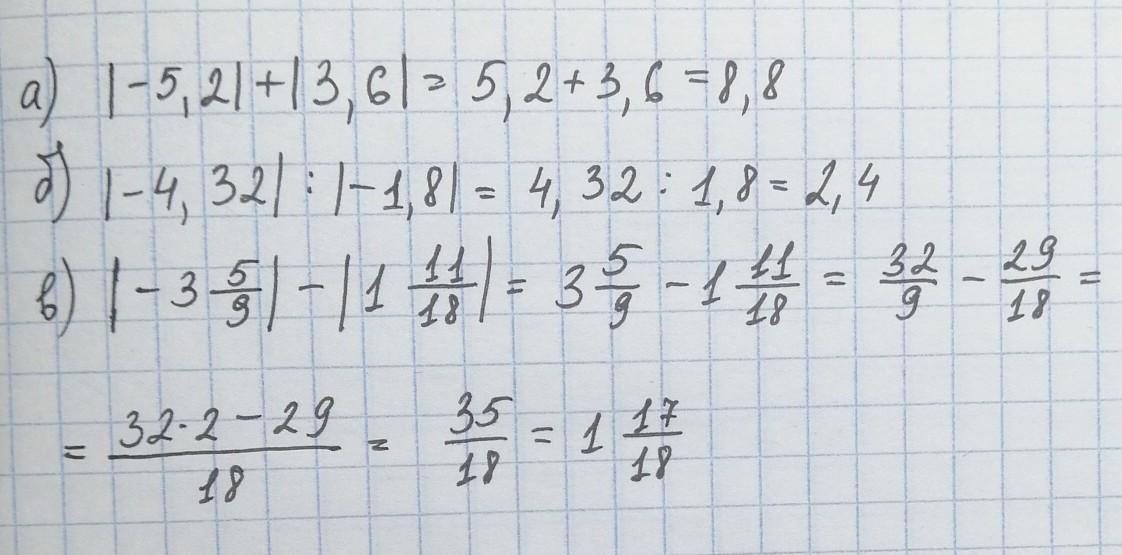 а) |-5,2|+|3,6|= 5,2+3,6=8,8
б) |-4,32|:|-1,8|= 4,32:1,8=2,4
в) |-3 5/9|-|1 11/18|= 3 5/9 -1 11/18 = 32/9 - 29/18 =
= (32·2-29)/18 = 35/18 = 1 17/18